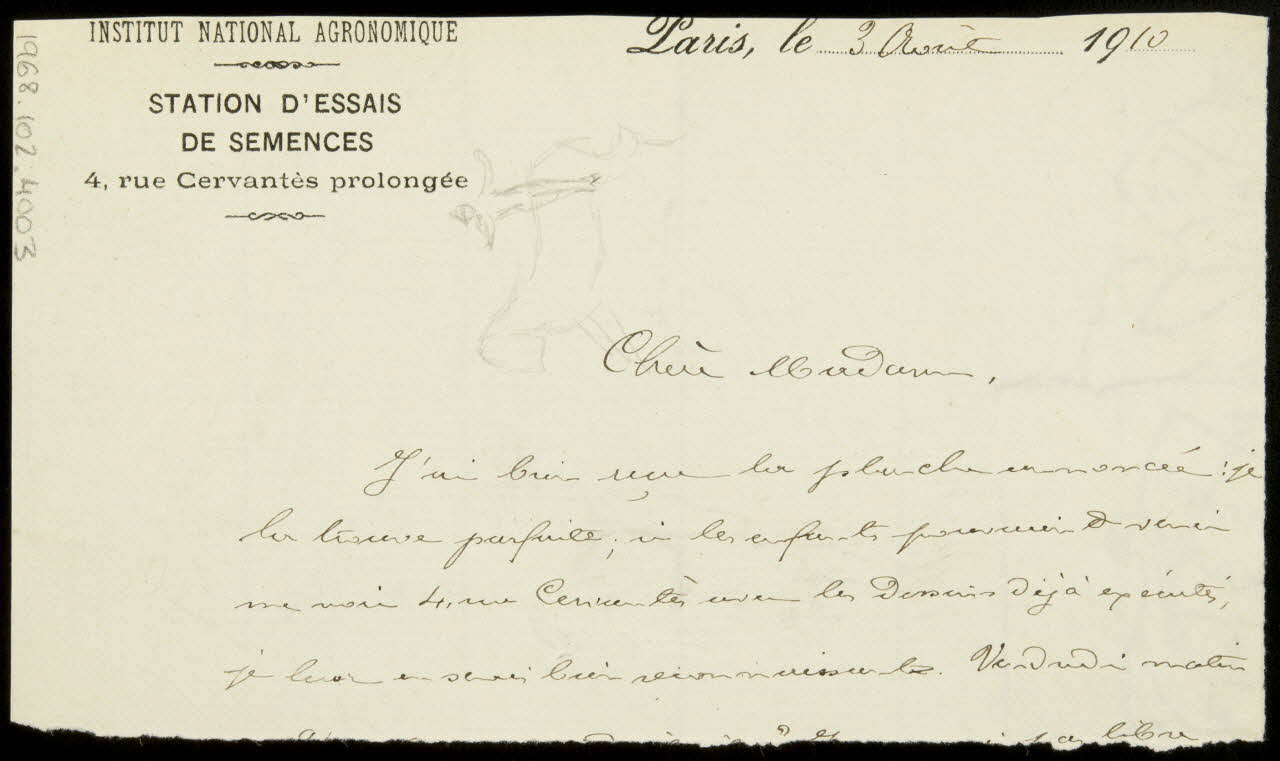 INSTITUT NATIONAL AGRONOMIQUE
STATION D'ESSAIS
DE SEMENCES
4, rue Cervantès prolongée
Paris, le 3 Août 1910
1968.102.4003
Chère Madame,
J'ai bien reçue la planche annoncée : je
la trouve parfaite ; si les enfants pouvaient venir
me voir 4, rue Cervantès avec les Dessins déjà exécutés,
je leur en serais bien reconnaissante. Vendredi matin
pas libre